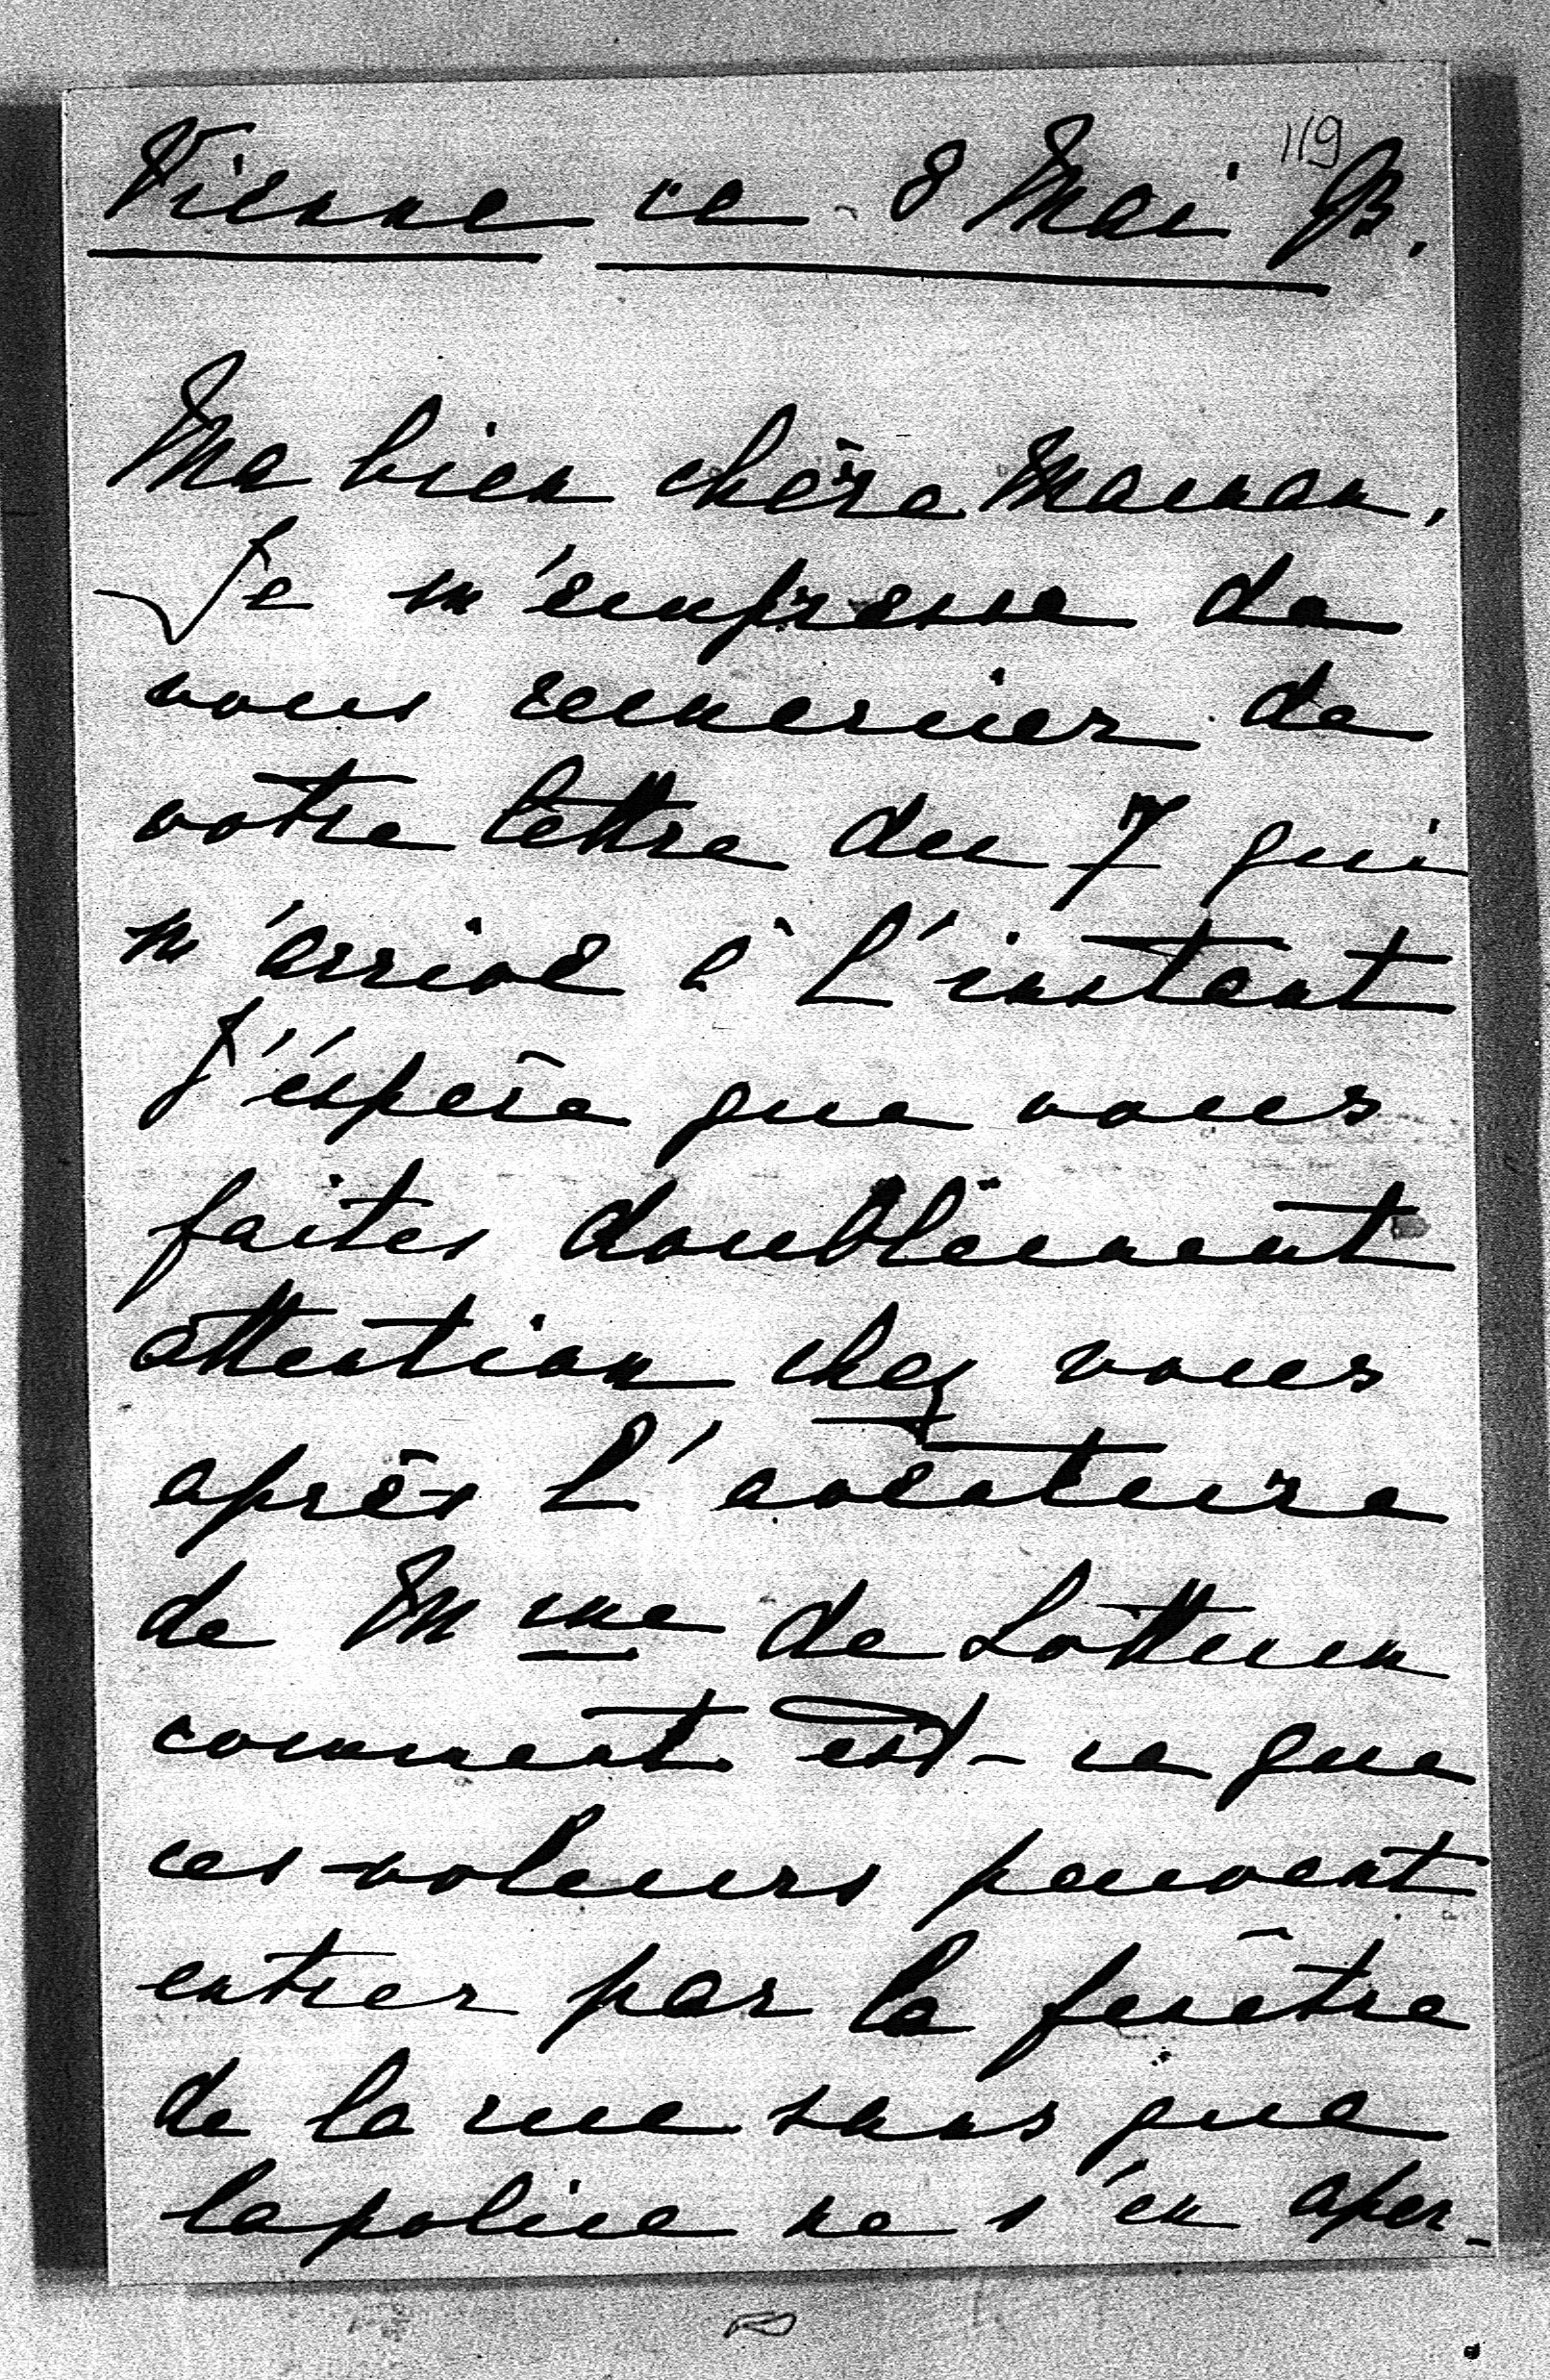 119
Vienne ce 8 Mai 93.
Ma bien chère Maman,
Je m'empresse de
vous remercier de
votre lettre du 7 qui
m'arrive à l'instant
J'éspère que vous
faites doublement
attention chez vous
après l'aventure
de Mme de
comment est-ce que
ces voleurs peuvent
entrer par la fenêtre
de la rue sans que
la police ne s'en aper-